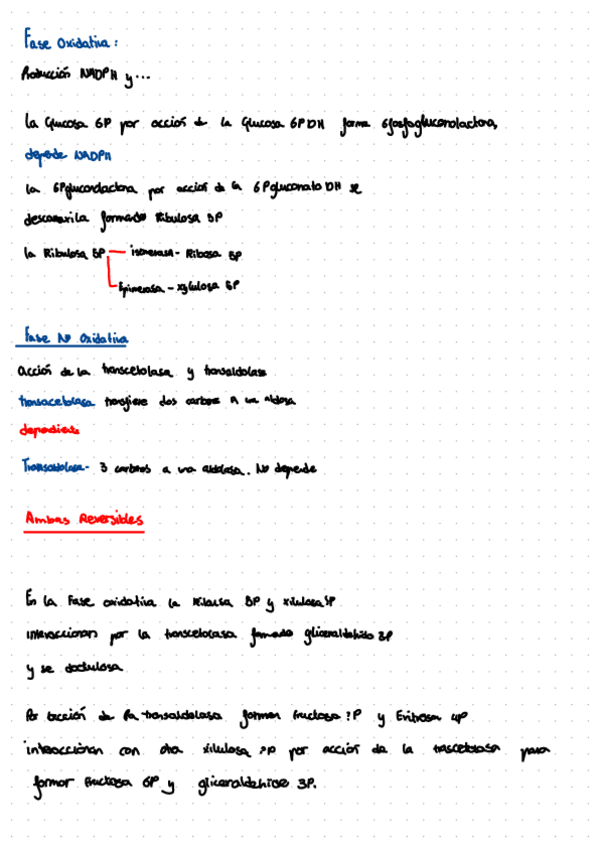 Fase Oxidativa:
Producción NADPH y...
La Glucosa 6P por acción de la Glucosa 6PDH forma 6fosfogluconolactona,
depende NADPH
la 6Pgluconolactona por acción de la 6Pgluconato DH se
descarboxila formando Ribulosa 5P
la Ribulosa 5P isomerasa - Ribosa 5P
Epimerasa - xylulosa 5P
Fase No Oxidativa
acción de la transcetolasa y transaldolasa
transacetolasa transfiere dos carbonos a una aldosa
dependiente
Transaldolasa - 3 carbonos a una aldolasa. No depende
Ambas Reversibles
En la Fase oxidativa la Ribosa 5P y xilulosa 5P
interaccionan por la transcetolasa formando gliceraldehido 3P
y
Por acción de la transaldolasa forman fructosa ?P y Eritrosa 4P
interaccionan con otra xilulosa ?P por acción de la trascetolasa para
formar fructosa 6P y gliceraldehido 3P.